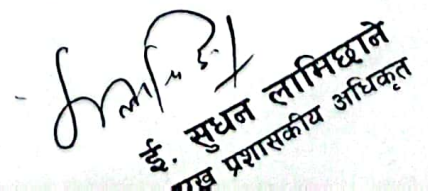 ई. सुधन लामिछाने
प्रशासकीय अधिकृत